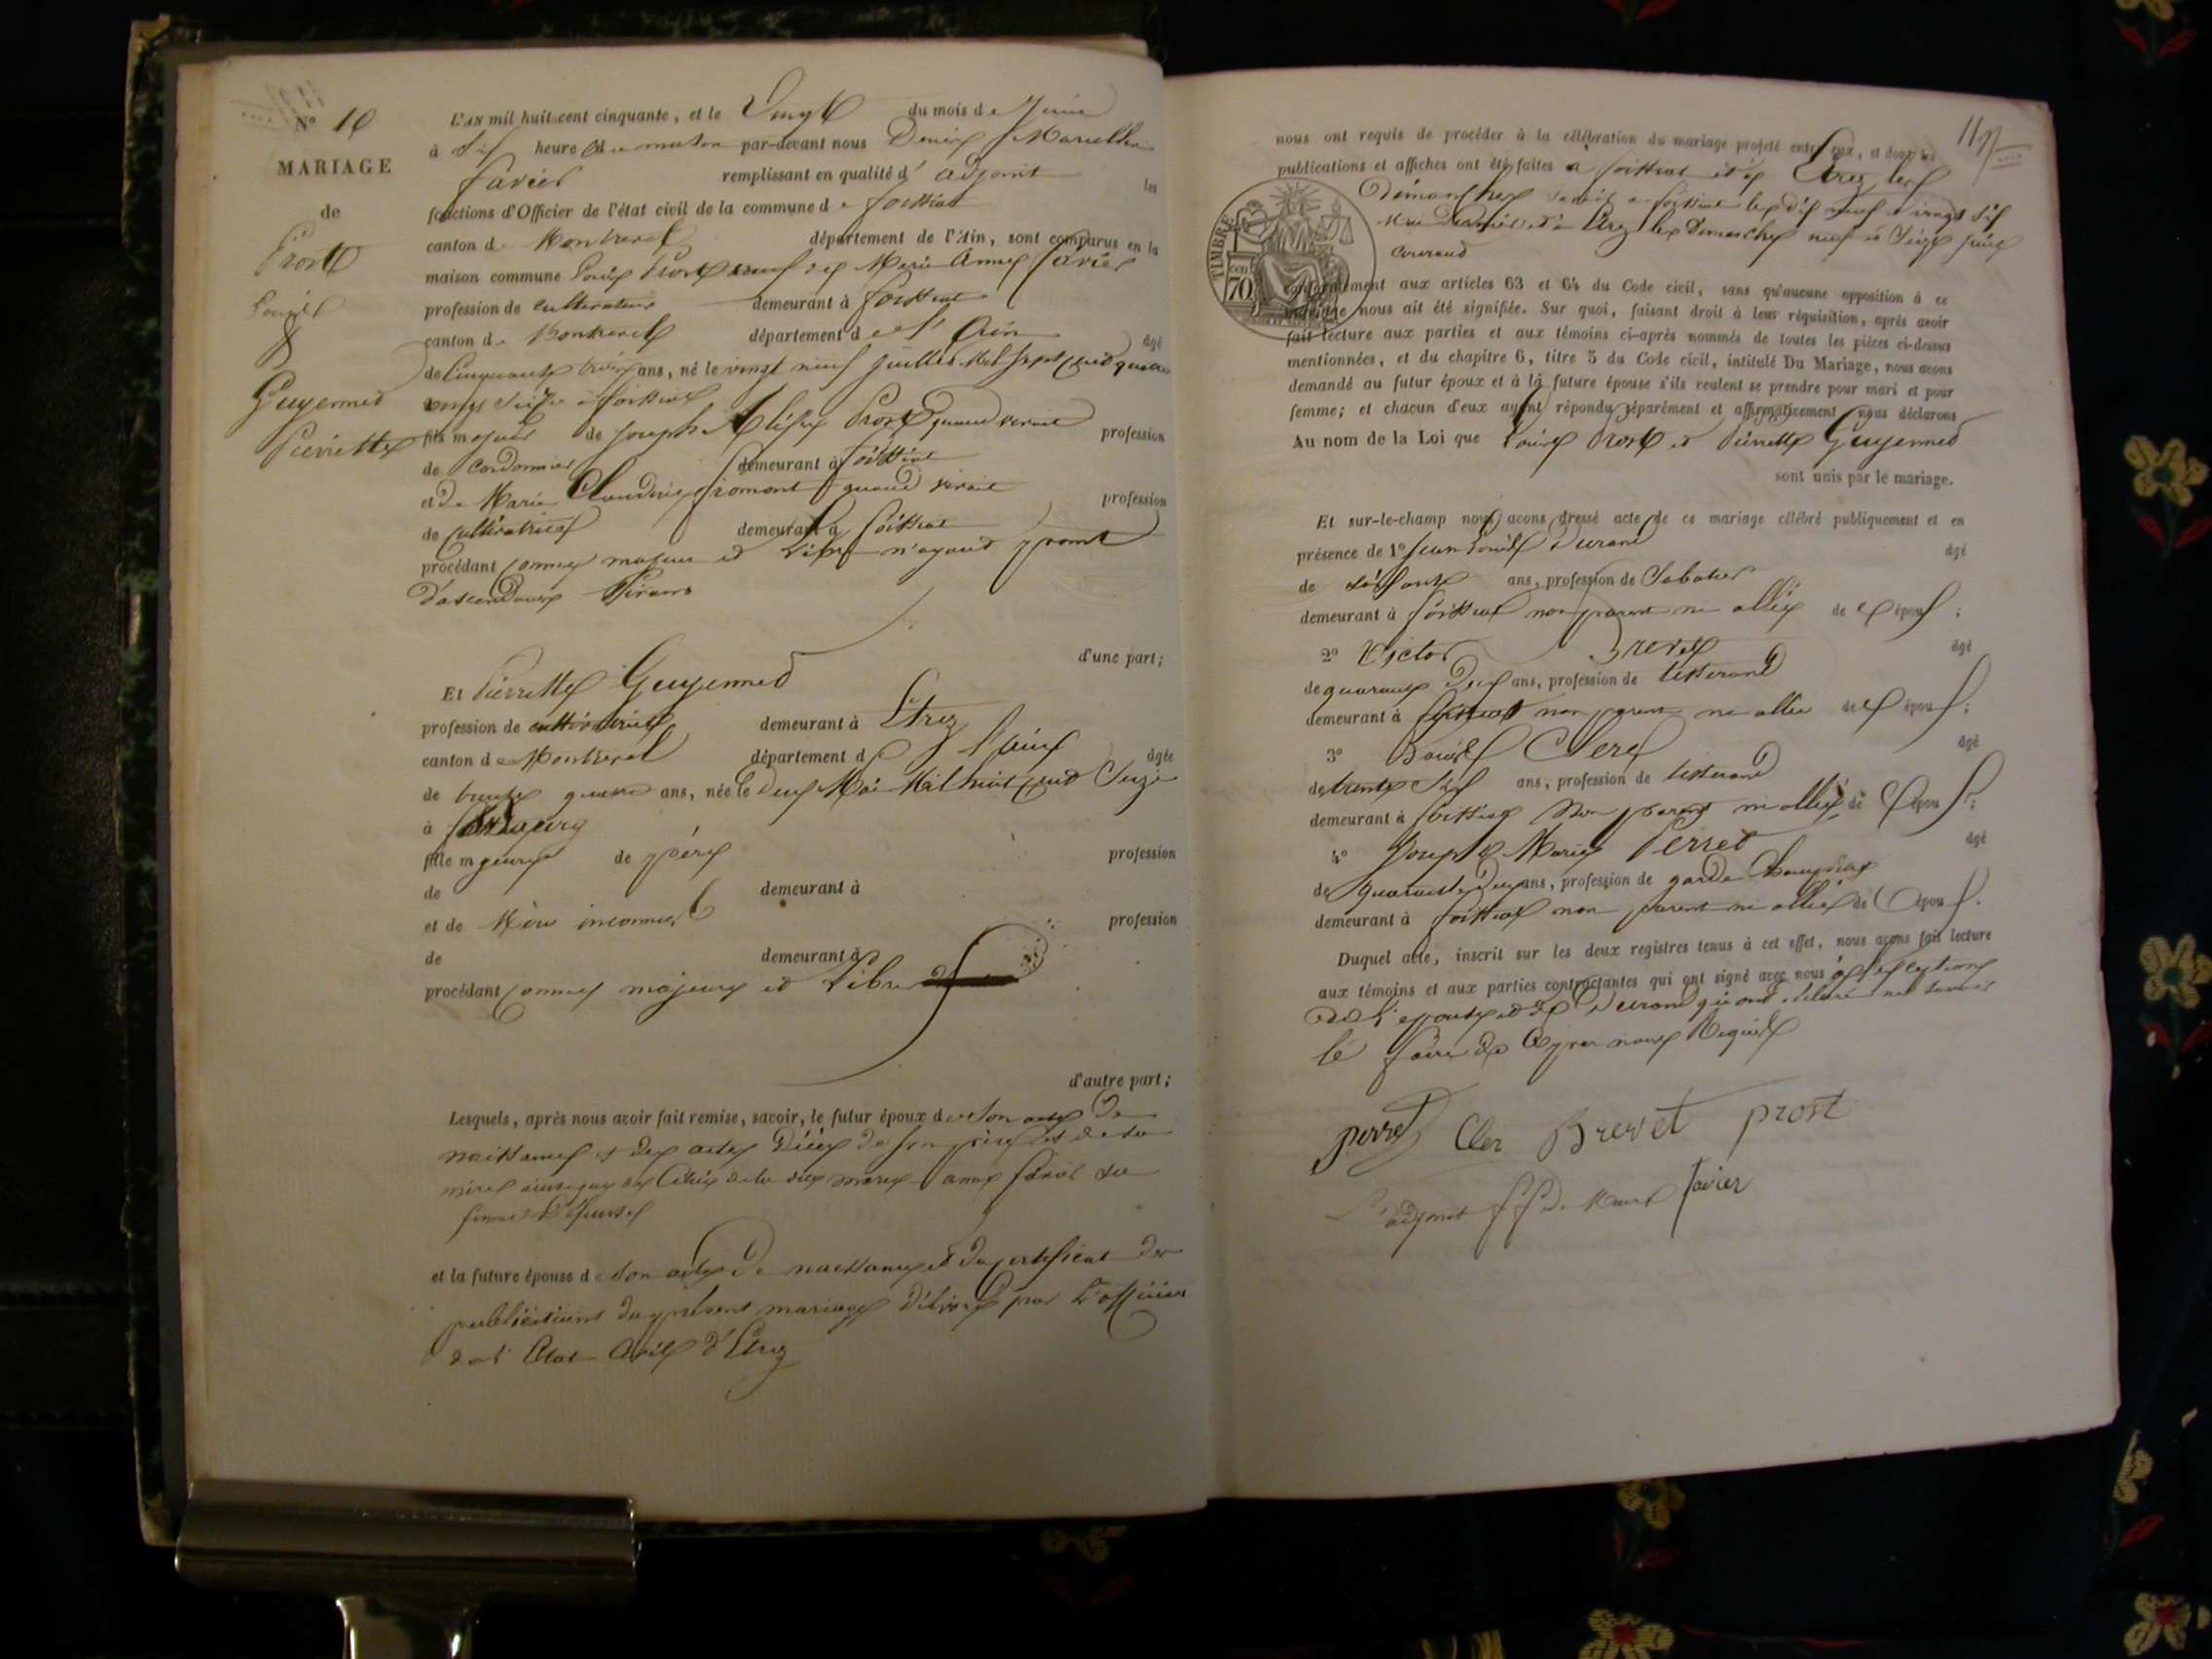 N° 16
MARIAGE
de
Prost
Louis
&
Guyennet
Pierrette
L'AN mil huit cent cinquante, et le Vingt du mois de Juin
à Six heure du matin par-devant nous Denis Marcellin
Favier remplissant en qualité d' adjoint les
fonctions d'Officier de l'état civil de la commune de foissiat
canton de Montrevel département de l'Ain, sont comparus en la
maison commune Louis Prost veuf de Marie Anne favier
profession de cultivateur demeurant à foissiat
canton de Montrevel département de l'Ain âgé
de Cinquante trois ans, né le vingt neuf Juillet Mil sept cent quatre
vingt Seize à foissiat
fils majeur de Joseph Prost quand vivait profession
de Cordonnier demeurant à foissiat
et de Marie Claudine fromont quand vivait profession
de Cultivatrice demeurant à foissiat
procédant comme majeur et Libre n'ayant point
d'ascendans Vivans
d'une part;
Et Pierrette Guyennet
profession de cultivatrice demeurant à Etrez
canton de Montrevel département de l'ain âgée
de trente quatre ans, née le Deux Mai Mil huit cent Seize
à
fille majeure de père profession
de demeurant à
et de Mère inconnus profession
de demeurant à
procédant comme majeure et Libre
d'autre part;
Lesquels, après nous avoir fait remise, savoir, le futur époux de Son acte De
naissance et des actes Décès de son père et de sa
mère de Marie anne favier sa
femme Défunte
et la future épouse de son acte De naissance et du certificat de
publications du présent mariage délivré par L'officier
de l' Etat Civil d'Etrez
117
nous ont requis de procéder à la célébration du mariage projeté entre eux, et dont les
publications et affiches ont été faites à foissiat et à Etrez les
Dimanches à foissiat les dix neuf vingt six
Mai Dernier et à Etrez les Dimanches neuf et Seize juin
courant
TIMBRE
70
conformément aux articles 63 et 64 du Code civil, sans qu'aucune opposition à ce
mariage nous ait été signifiée. Sur quoi, faisant droit à leur réquisition, après avoir
fait lecture aux parties et aux témoins ci-après nommés de toutes les pièces ci-dessus
mentionnées, et du chapitre 6, titre 5 du Code civil, intitulé Du Mariage, nous avons
demandé au futur époux et à la future épouse s'ils veulent se prendre pour mari et pour
femme; et chacun d'eux ayant répondu séparément et affirmativement nous déclarons
Au nom de la Loi que Louis Prost et Pierrette Guyennet
sont unis par le mariage.
Et sur-le-champ nous avons dressé acte de ce mariage célébré publiquement et en
présence de 1° Jean Louis Durand âgé
de soissante ans, profession de Sabotier
demeurant à foissiat non parent ni allié de époux;
2° Victor Brevet âgé
de quarante Deux ans, profession de tisserand
demeurant à foissiat non parent ni allié des époux;
3° Louis Clerc âgé
de trente Six ans, profession de tisserand
demeurant à foissiat Non parent ni allié de époux;
4° Joseph Marie Perret âgé
de quarante deux ans, profession de garde champêtre
demeurant à foissiat non parent ni allié de époux.
Duquel acte, inscrit sur les deux registres tenus à cet effet, nous avons fait lecture
aux témoins et aux parties contractantes qui ont signé avec nous à l'exception
de l'epouse et de Durand qui ont déclaré ne savoir
le faire de ce par nous Requis
perret Cler Brevet prost
L'adjoint ff de Maire favier